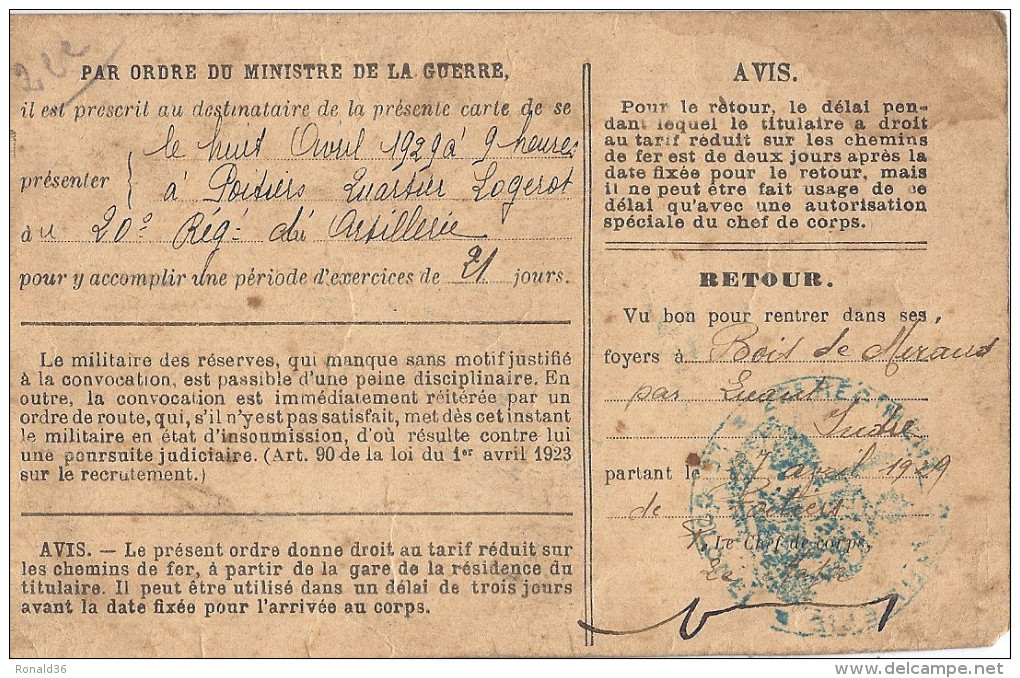 PAR ORDRE DU MINISTRE DE LA GUERRE,
il est prescrit au destinataire de la présente carte de se
présenter
le huit Avril 1929 à 9 heures
à Poitiers Quartier Logerot
au 20e Rég. d' Artillerie
pour y accomplir une période d'exercices de 21 jours.
Le militaire des réserves, qui manque sans motif justifié
à la convocation, est passible d'une peine disciplinaire. En
outre, la convocation est immédiatement réitérée par un
ordre de route, qui, s'il n'y est pas satisfait, met dès cet instant
le militaire en état d'insoumission, d'où résulte contre lui
une poursuite judiciaire. (Art. 90 de la loi du 1er avril 1923
sur le recrutement.)
AVIS. — Le présent ordre donne droit au tarif réduit sur
les chemins de fer, à partir de la gare de la résidence du
titulaire. Il peut être utilisé dans un délai de trois jours
avant la date fixée pour l'arrivée au corps.
AVIS.
Pour le retour, le délai pen-
dant lequel le titulaire a droit
au tarif réduit sur les chemins
de fer est de deux jours après la
date fixée pour le retour, mais
il ne peut être fait usage de ce
délai qu'avec une autorisation
spéciale du chef de corps.
RETOUR.
Vu bon pour rentrer dans ses
foyers à Bois de Méraud
par Luant
Indre
partant le 27 avril 1929
de Poitiers
Le Chef de corps,
Ronald36
www.delcampe.net